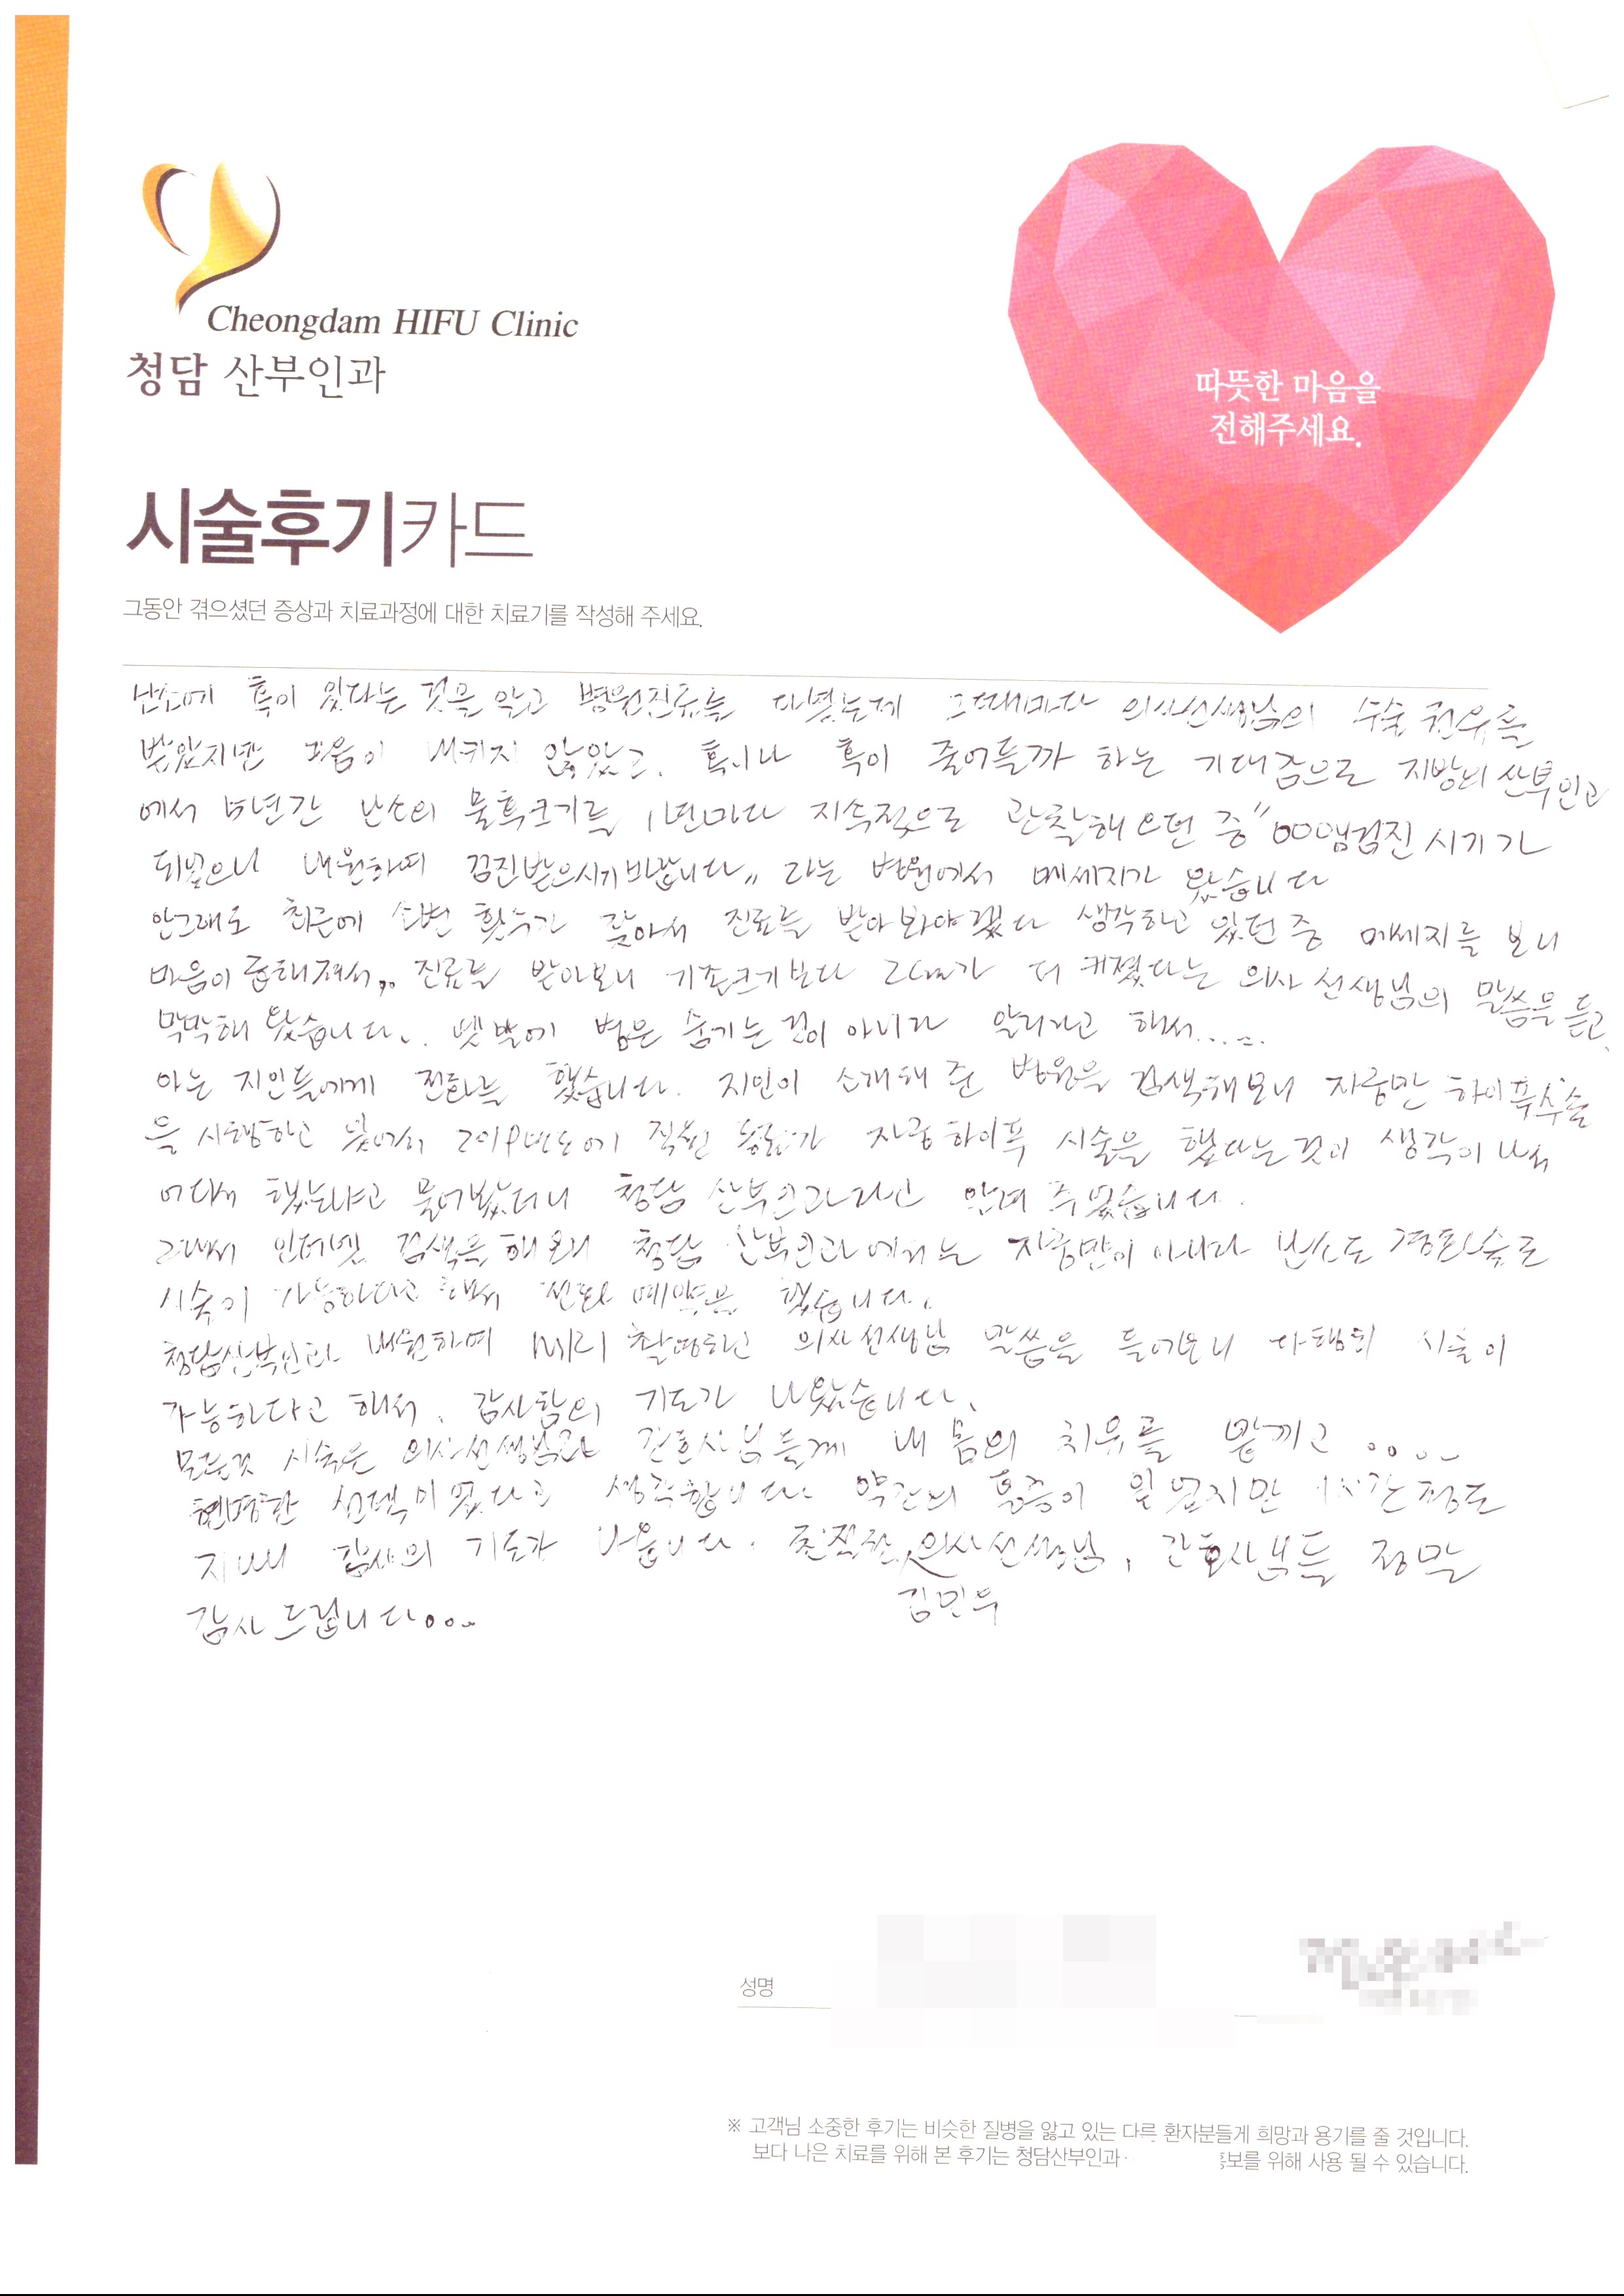 Cheongdam HIFU Clinic
청담 산부인과
따뜻한 마음을
전해주세요.
시술후기카드
그동안 겪으셨던 증상과 치료과정에 대한 치료기를 작성해 주세요.
난소에 혹이 있다는 것을 알고 병원진료를 다녔는데 그때마다 의사선생님의 수술 권유를
받았지만 마음이 내키지 않았고, 혹시나 혹이 줄어들까 하는 기대감으로 지방의 산부인과
에서 5년간 난소의 물혹크기를 1년마다 지속적으로 관찰해 오던 중 "OOO앰검진 시기가
되었으니 내원하여 검진받으시기 바랍니다" 라는 병원에서 메세지가 왔습니다
안그래도 최근에 소변 횟수가 잦아서 진료를 받아봐야겠다 생각하고 있던 중 메세지를 보니
마음이 급해져서,, 진료를 받아보니 기존크기보다 2cm가 더 커졌다는 의사선생님의 말씀을 듣고,
막막해 왔습니다.. 옛말에 병은 숨기는 것이 아니라 알리라고 해서.....
아는 지인들에게 전화를 했습니다. 지인이 소개해 준 병원을 검색해보니 자궁만 하이푸수술
을 시행하고 있어서 2019년도에 직원 동료가 자궁하이푸 시술을 했다는 것이 생각이 나서
어디서 했느냐고 물어봤더니 청담 산부인과라고 알려 주었습니다.
그래서 인터넷 검색을 해보니 청담 산부인과에서는 자궁만이 아니라 난소도 경화술로
시술이 가능하다고 해서 전화 예약을 했습니다.
청담산부인과 내원하여 MRI 촬영하고 의사선생님 말씀을 들어보니 다행히 시술이
가능하다고 해서, 감사함의 기도가 나왔습니다.
모든것 시술은 의사선생님과 간호사님들께 내 몸의 치유를 맡기고 ....
현명한 선택이었다고 생각합니다. 약간의 통증이 있었지만 1시간 정도
지나니 감사의 기도가 나옵니다. 친절한 의사선생님, 간호사님들 정말
김민우
감사드립니다...
성명
※ 고객님 소중한 후기는 비슷한 질병을 앓고 있는 다른 환자분들게 희망과 용기를 줄 것입니다.
보다 나은 치료를 위해 본 후기는 청담산부인과 홍보를 위해 사용 될 수 있습니다.